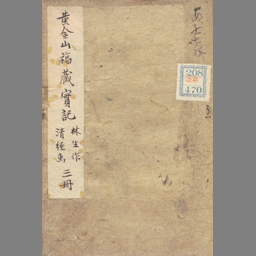 黄金山福蔵實記
林生作
清經画
三冊
208
170